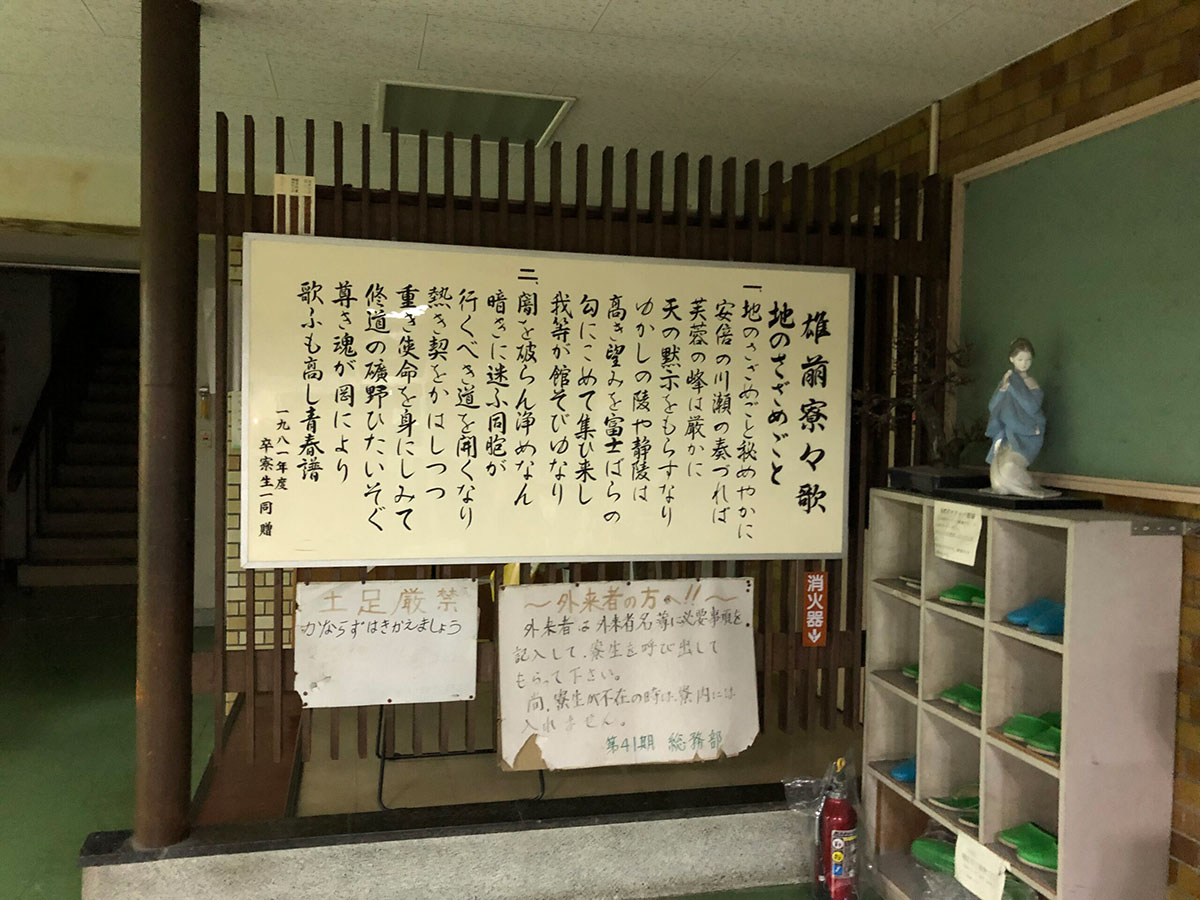 雄萠寮々歌
地のさざめごと
一、地のさざめごと秘めやかに
安倍の川瀬の奏づれば
芙蓉の峰は厳かに
天の黙示をもらすなり
ゆかしの陵や静陵は
高き望みを富士ばらの
勾にこめて集ひ来し
我等が館そびゆなり
二、闇を破らん浄めなん
暗きに迷ふ同胞が
行くべき道を開くなり
熱き契をかはしつつ
重き使命を身にしみて
修道の礦野ひたいそぐ
尊き魂が岡により
歌ふも高し青春譜
一九八一年度
卒寮生一同 贈
土足厳禁
かならずはきかえましょう
〜外来者の方へ!!〜
外来者は外来者名簿に必要事項を
記入して、寮生を呼び出して
もらって下さい。
尚、寮生が不在の時は、寮内には
入れません。
第41期 総務部
消火器